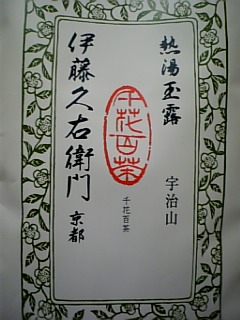 熱湯玉露
宇治山
千花百茶
千花百茶
伊藤久右衛門
京都